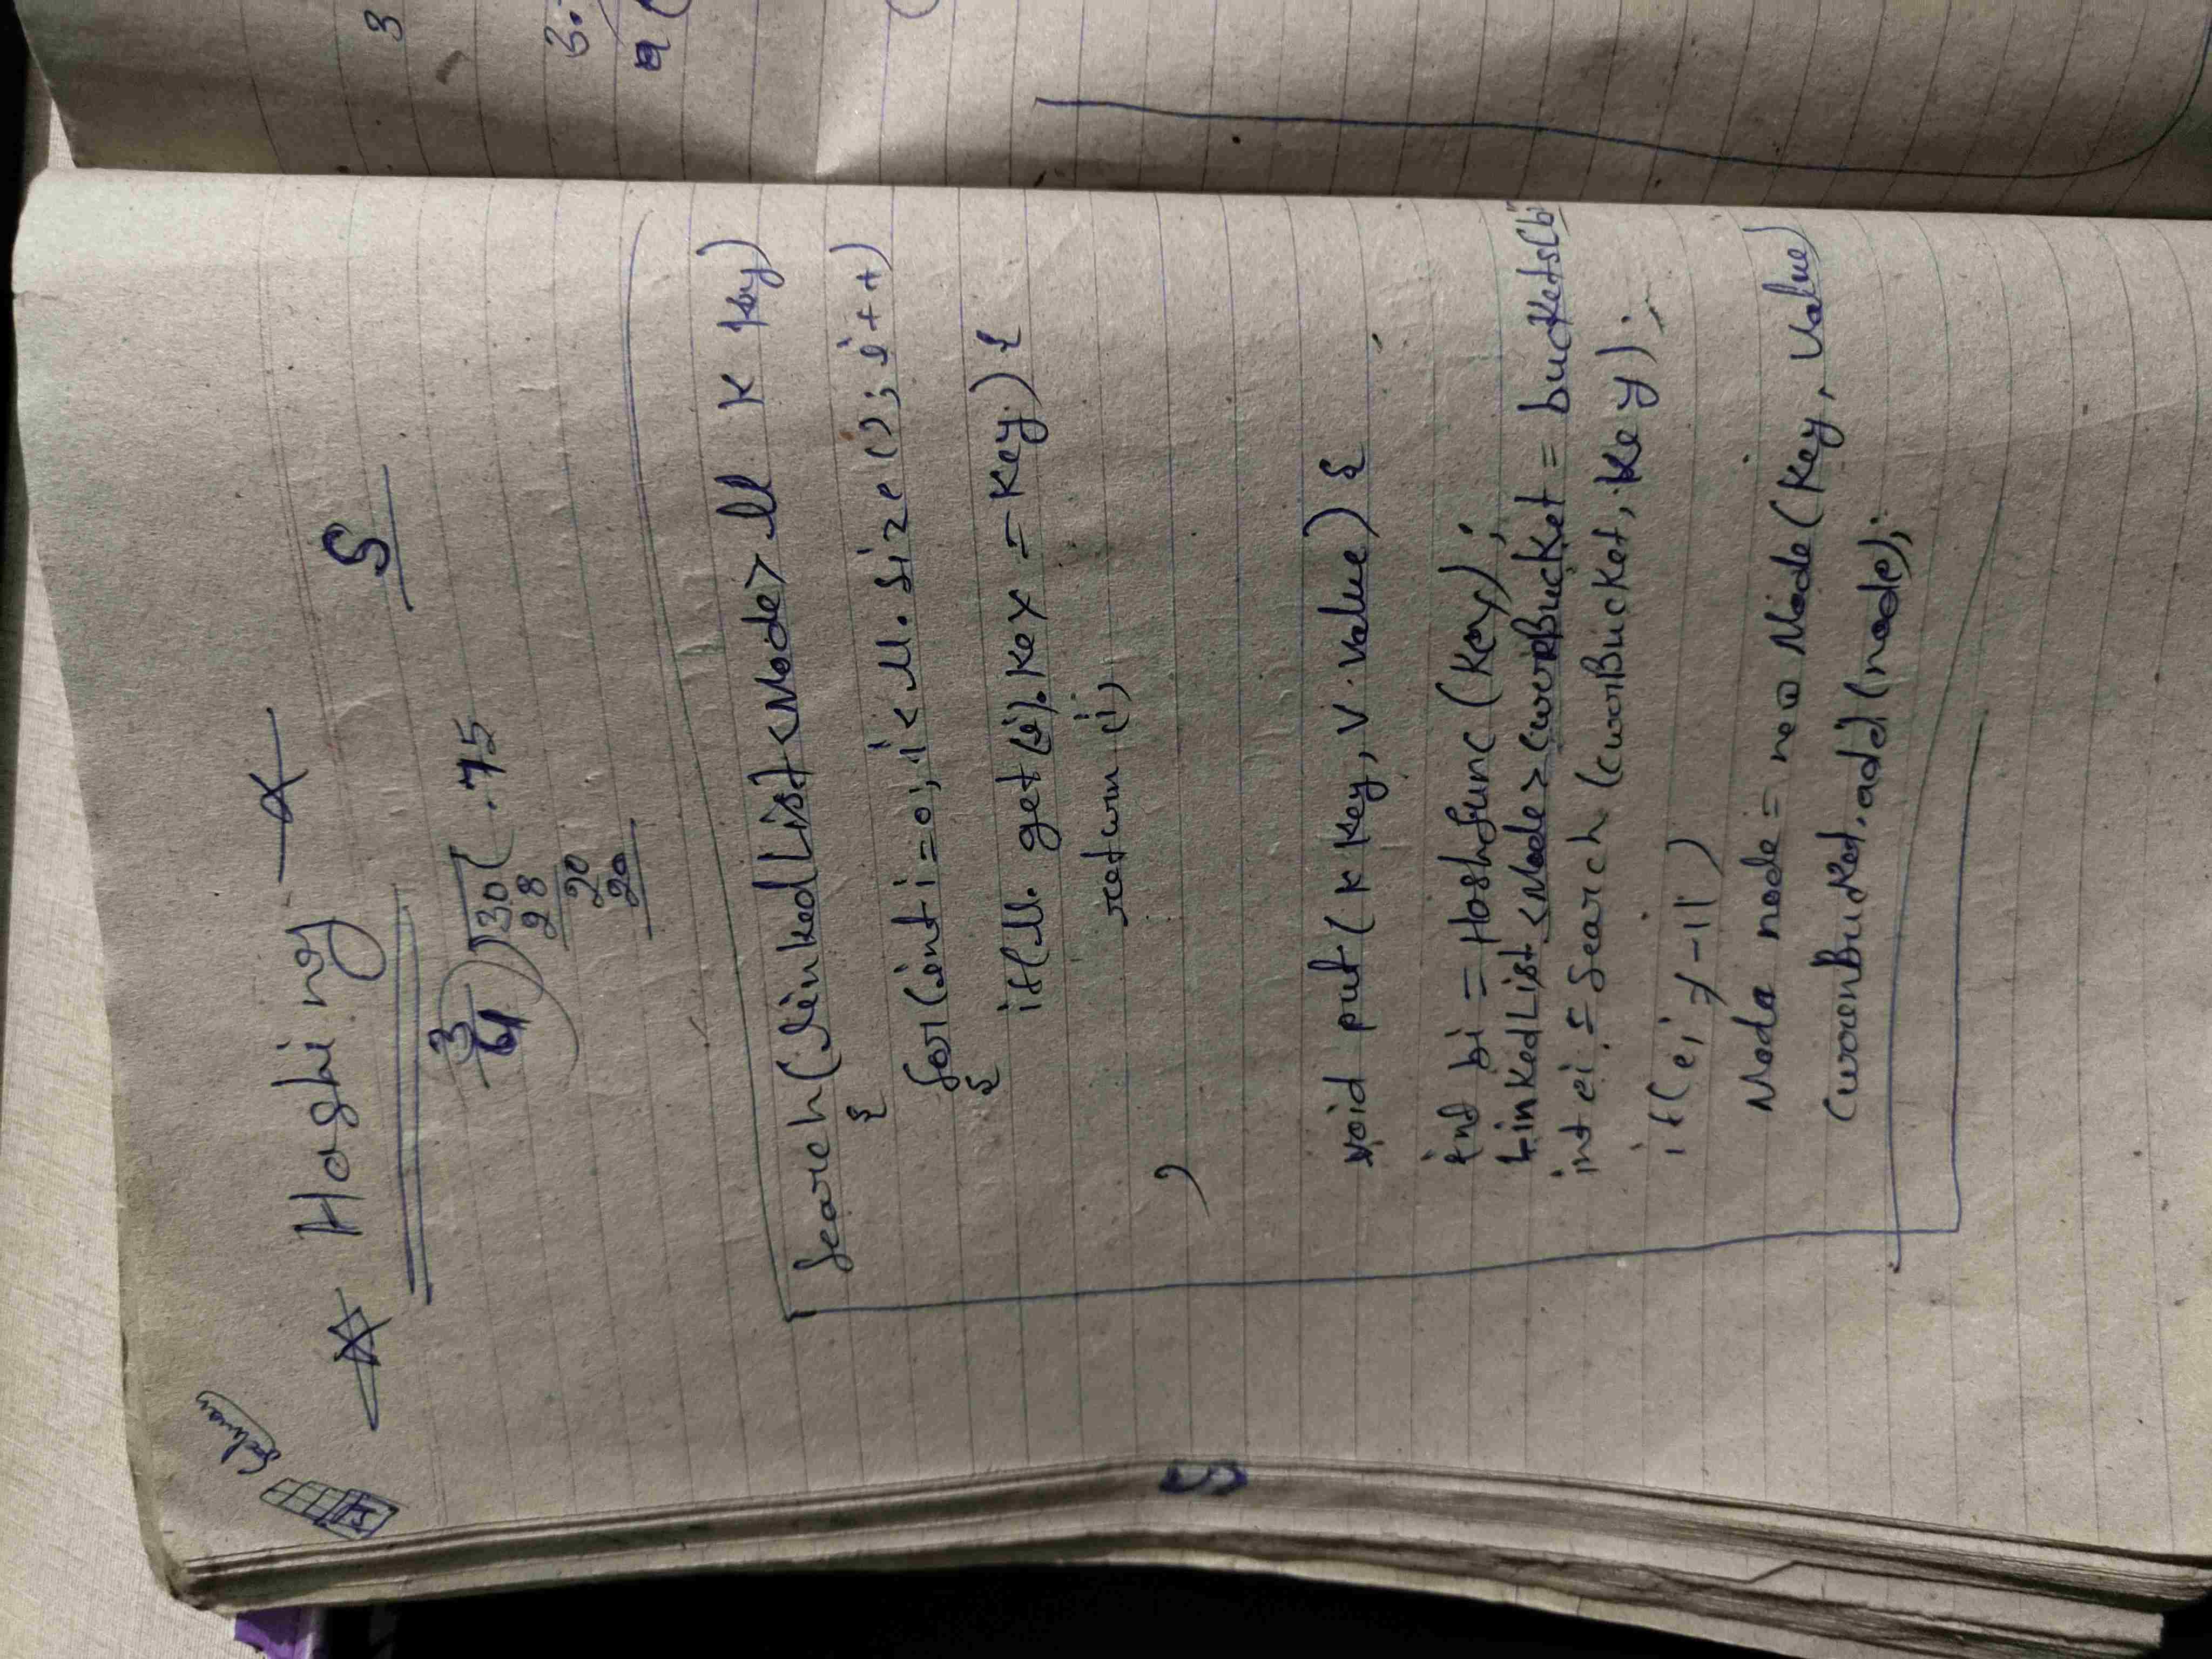 Salman
Hashing
S
3
4 ) 30 ( .75
28
20
20
Search(linkedList<Node> ll K Key)
{
for(int i=0; i< ll. size(); i++)
{
if(ll. get(i).Key = Key) {
return i;
}
void put(K Key, V value) {
int bi = Hashfunc (Key);
LinkedList <Node> CurrBucket = buckets(bi
int ei = Search (CurrBucket, Key);
if(ei
Node node = new Node(Key, Value)
CurrenBucket.add(node);
3
3.
a (